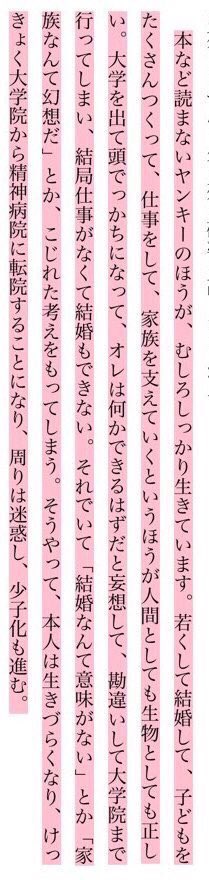 本など読まないヤンキーのほうが、むしろしっかり生きています。若くして結婚して、子どもを
たくさんつくって、仕事をして、家族を支えていくというほうが人間としても生物としても正し
い。大学を出て頭でっかちになって、オレは何かできるはずだと妄想して、勘違いして大学院まで
行ってしまい、結局仕事がなくて結婚もできない。それでいて「結婚なんて意味がない」とか「家
族なんて幻想だ」とか、こじれた考えをもってしまう。そうやって、本人は生きづらくなり、けっ
きょく大学院から精神病院に転院することになり、周りは迷惑し、少子化も進む。